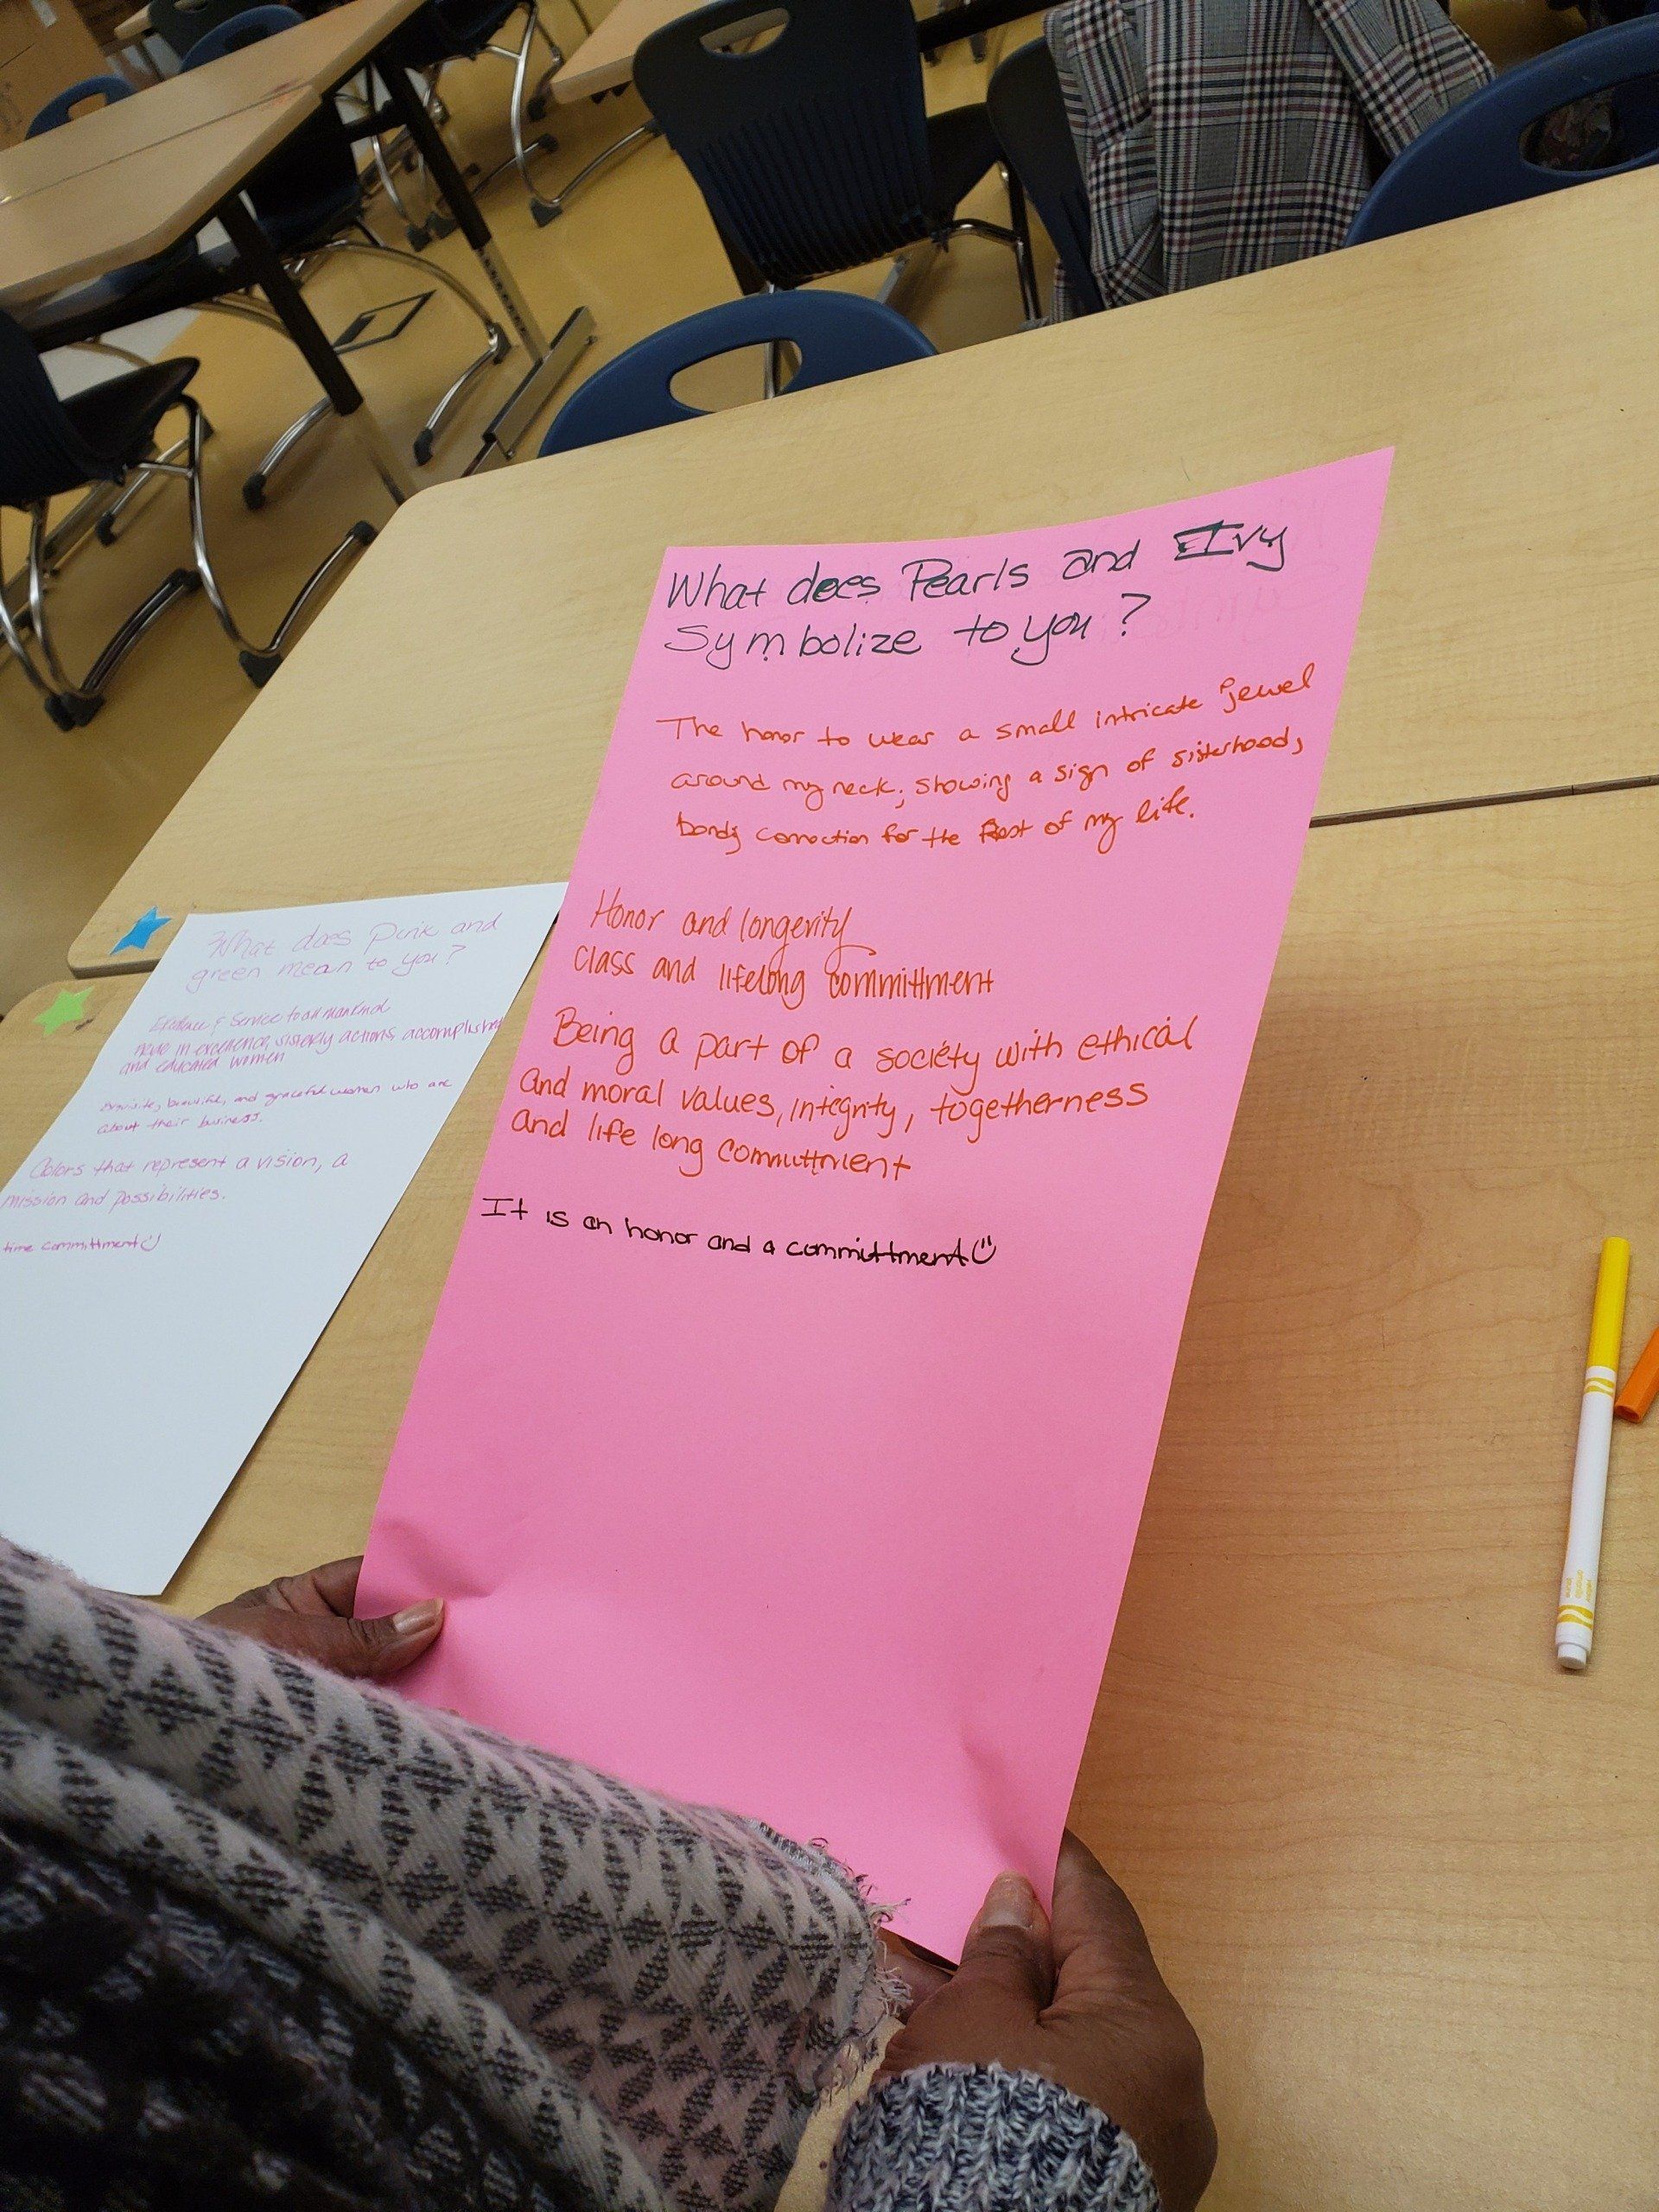 What does Pearls and Ivy
Symbolize to you?
The honor to wear a small intricate jewel
around my neck; showing a sign of sisterhood,
bondg connection for the Rest of my life.
Honor and longevity
class and lifelong committment
Being a part of a society with ethical
and moral values, integrity, togetherness
and life long committment
It is an honor and a committment
What does Pink and
green mean to you?
& Service to all mankind
in excellence, sisterly actions, accomplished
and educated women
Exquisite, beautiful, and graceful women who are
about their business.
Colors that represent a vision, a
mission and possibilities.
time committment